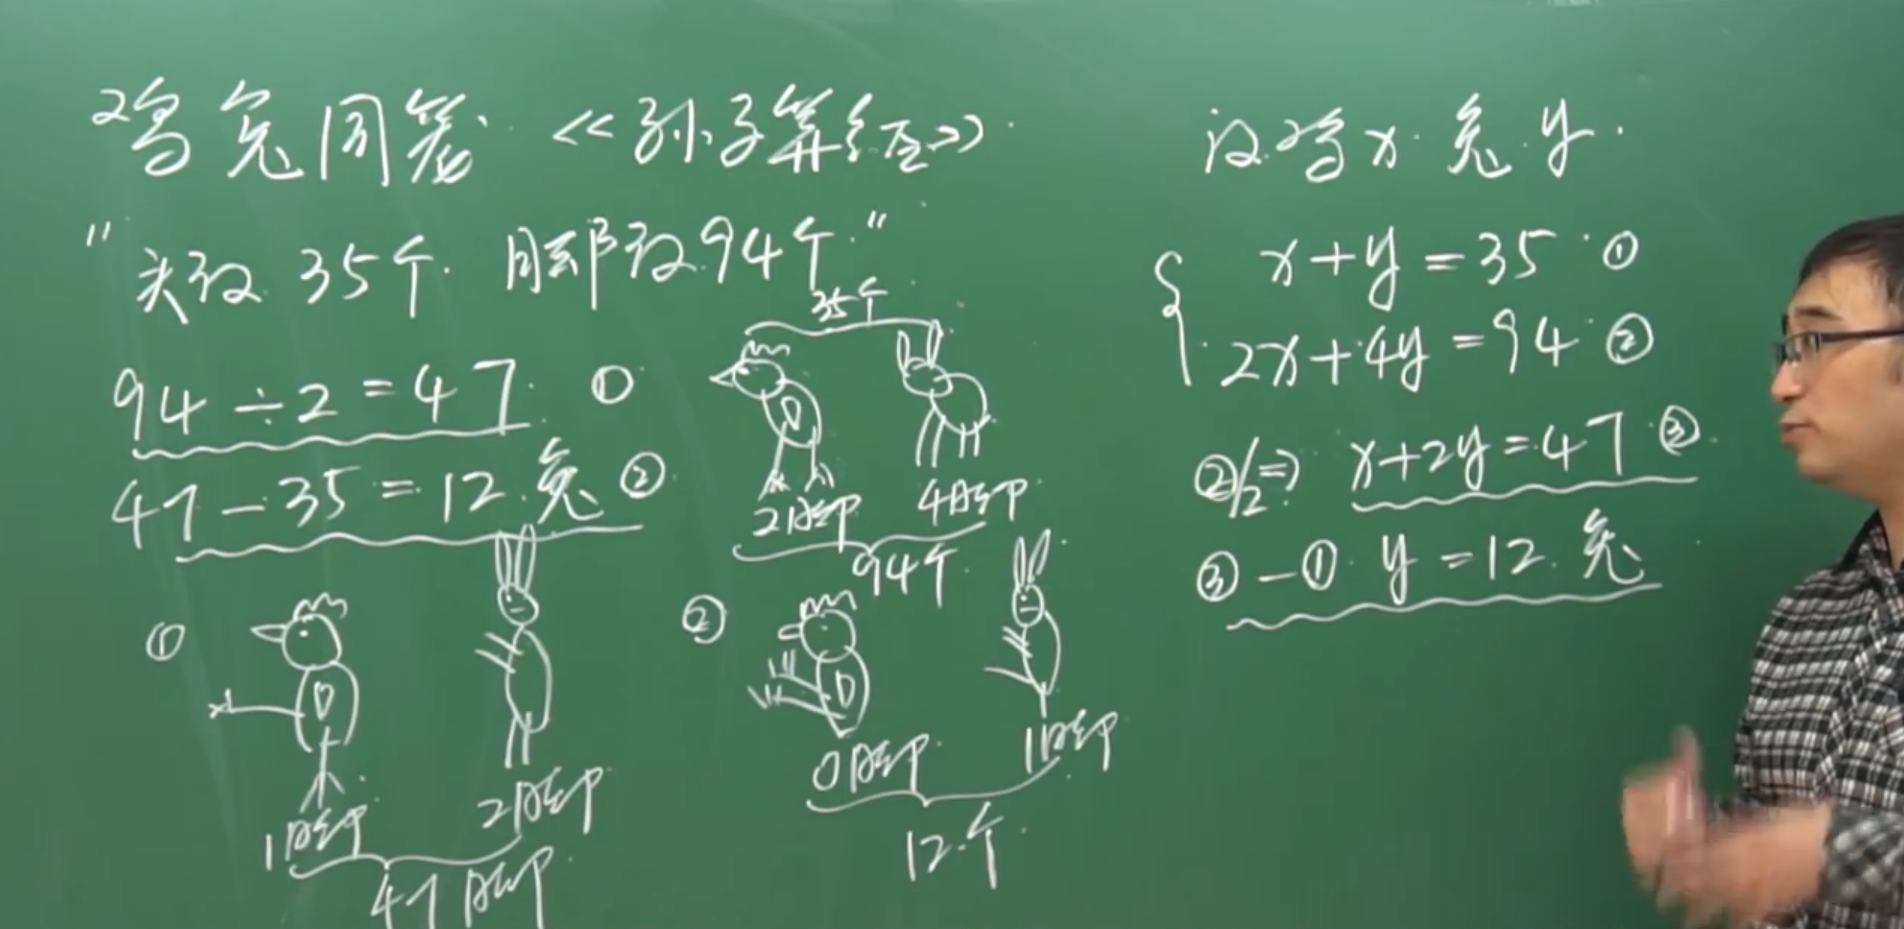 鸡兔同笼 《孙子算经》
"头数 35个 脚数 94个"
94÷2=47 ①
47-35=12 兔 ②
35个
2脚 4脚
94个
①
1脚 2脚
47脚
②
0脚 1脚
12个
设鸡x 兔y
{ x+y=35 ①
2x+4y=94 ②
②/2⇒ x+2y=47 ③
③-① y=12 兔